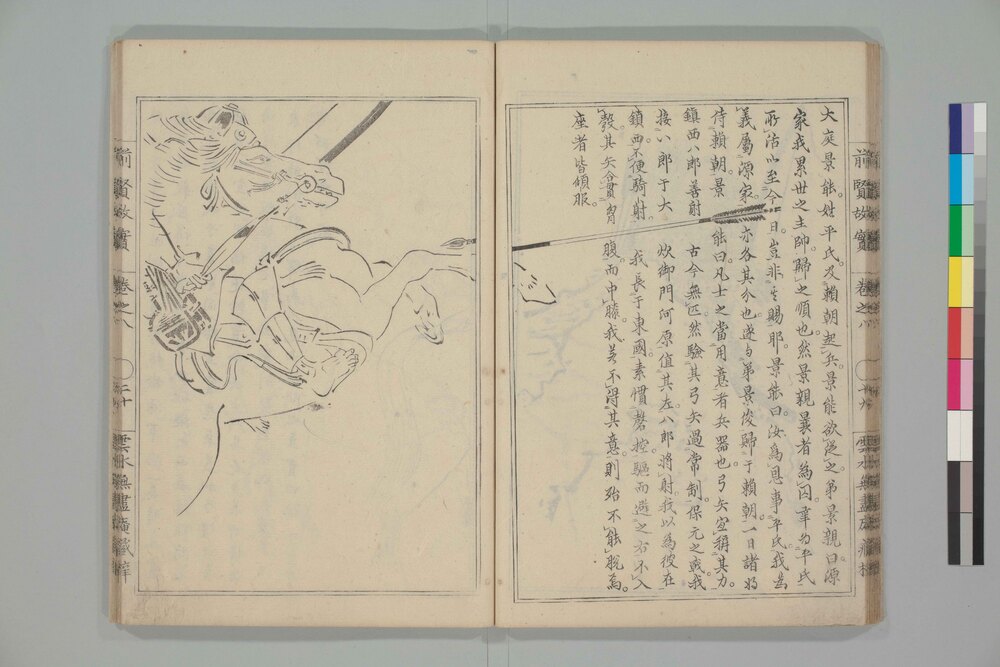 大庭景能。姓平氏。及賴朝起兵。景能欲從之。弟景親曰。源
家我累世之主帥。歸之順也。然景親曩者為囚。幸為平氏
所活。以至今日。豈非其賜耶。景能曰。汝為恩事平氏。我為
義屬源家。亦各其分也。遂与弟景俊歸于賴朝。一日諸将
侍賴朝。景能曰。凡士之當用意者兵器也。弓矢宜稱其力。
鎮西八郎善射。古今無匹。然驗其弓矢過常制。保元之戰。我
接八郎于大炊御門河原。值其左。八郎將射。我以為彼在
鎮西不便騎射。我長于東國。素慣磬控。驅而遶之右。不入
彀。其矢今貫臂腹。而中膝。我若不得其意。則殆不能脫焉。
座者皆傾服。
前賢故實
卷之八
十九
雲水無盡庵藏梓
前賢故實
卷之八
二十
雲水無盡庵藏梓